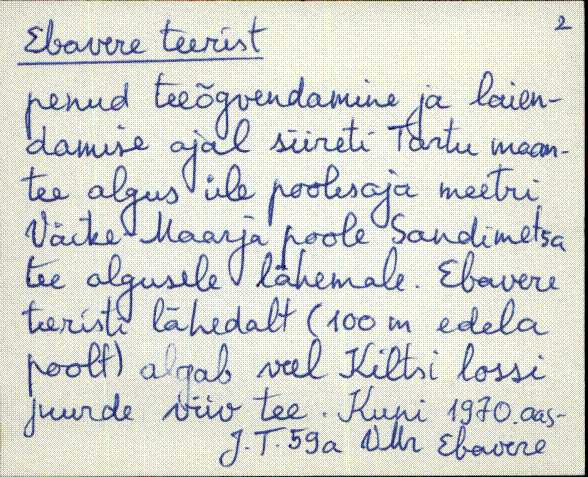 2
Ebavere teerist
penud teeõgvendamine ja laien-
damise ajal siireti Tartu maan-
tee algus üle poolesaja meetri
Väike Maarja poole Sandimetsa
tee algusele lähemale. Ebavere
teeristi lähedalt (100 m edela
poolt) algab veel Kiltsi lossi
juurde viiv tee. Kuni 1970.aas-
J.T. 59a VMr Ebavere